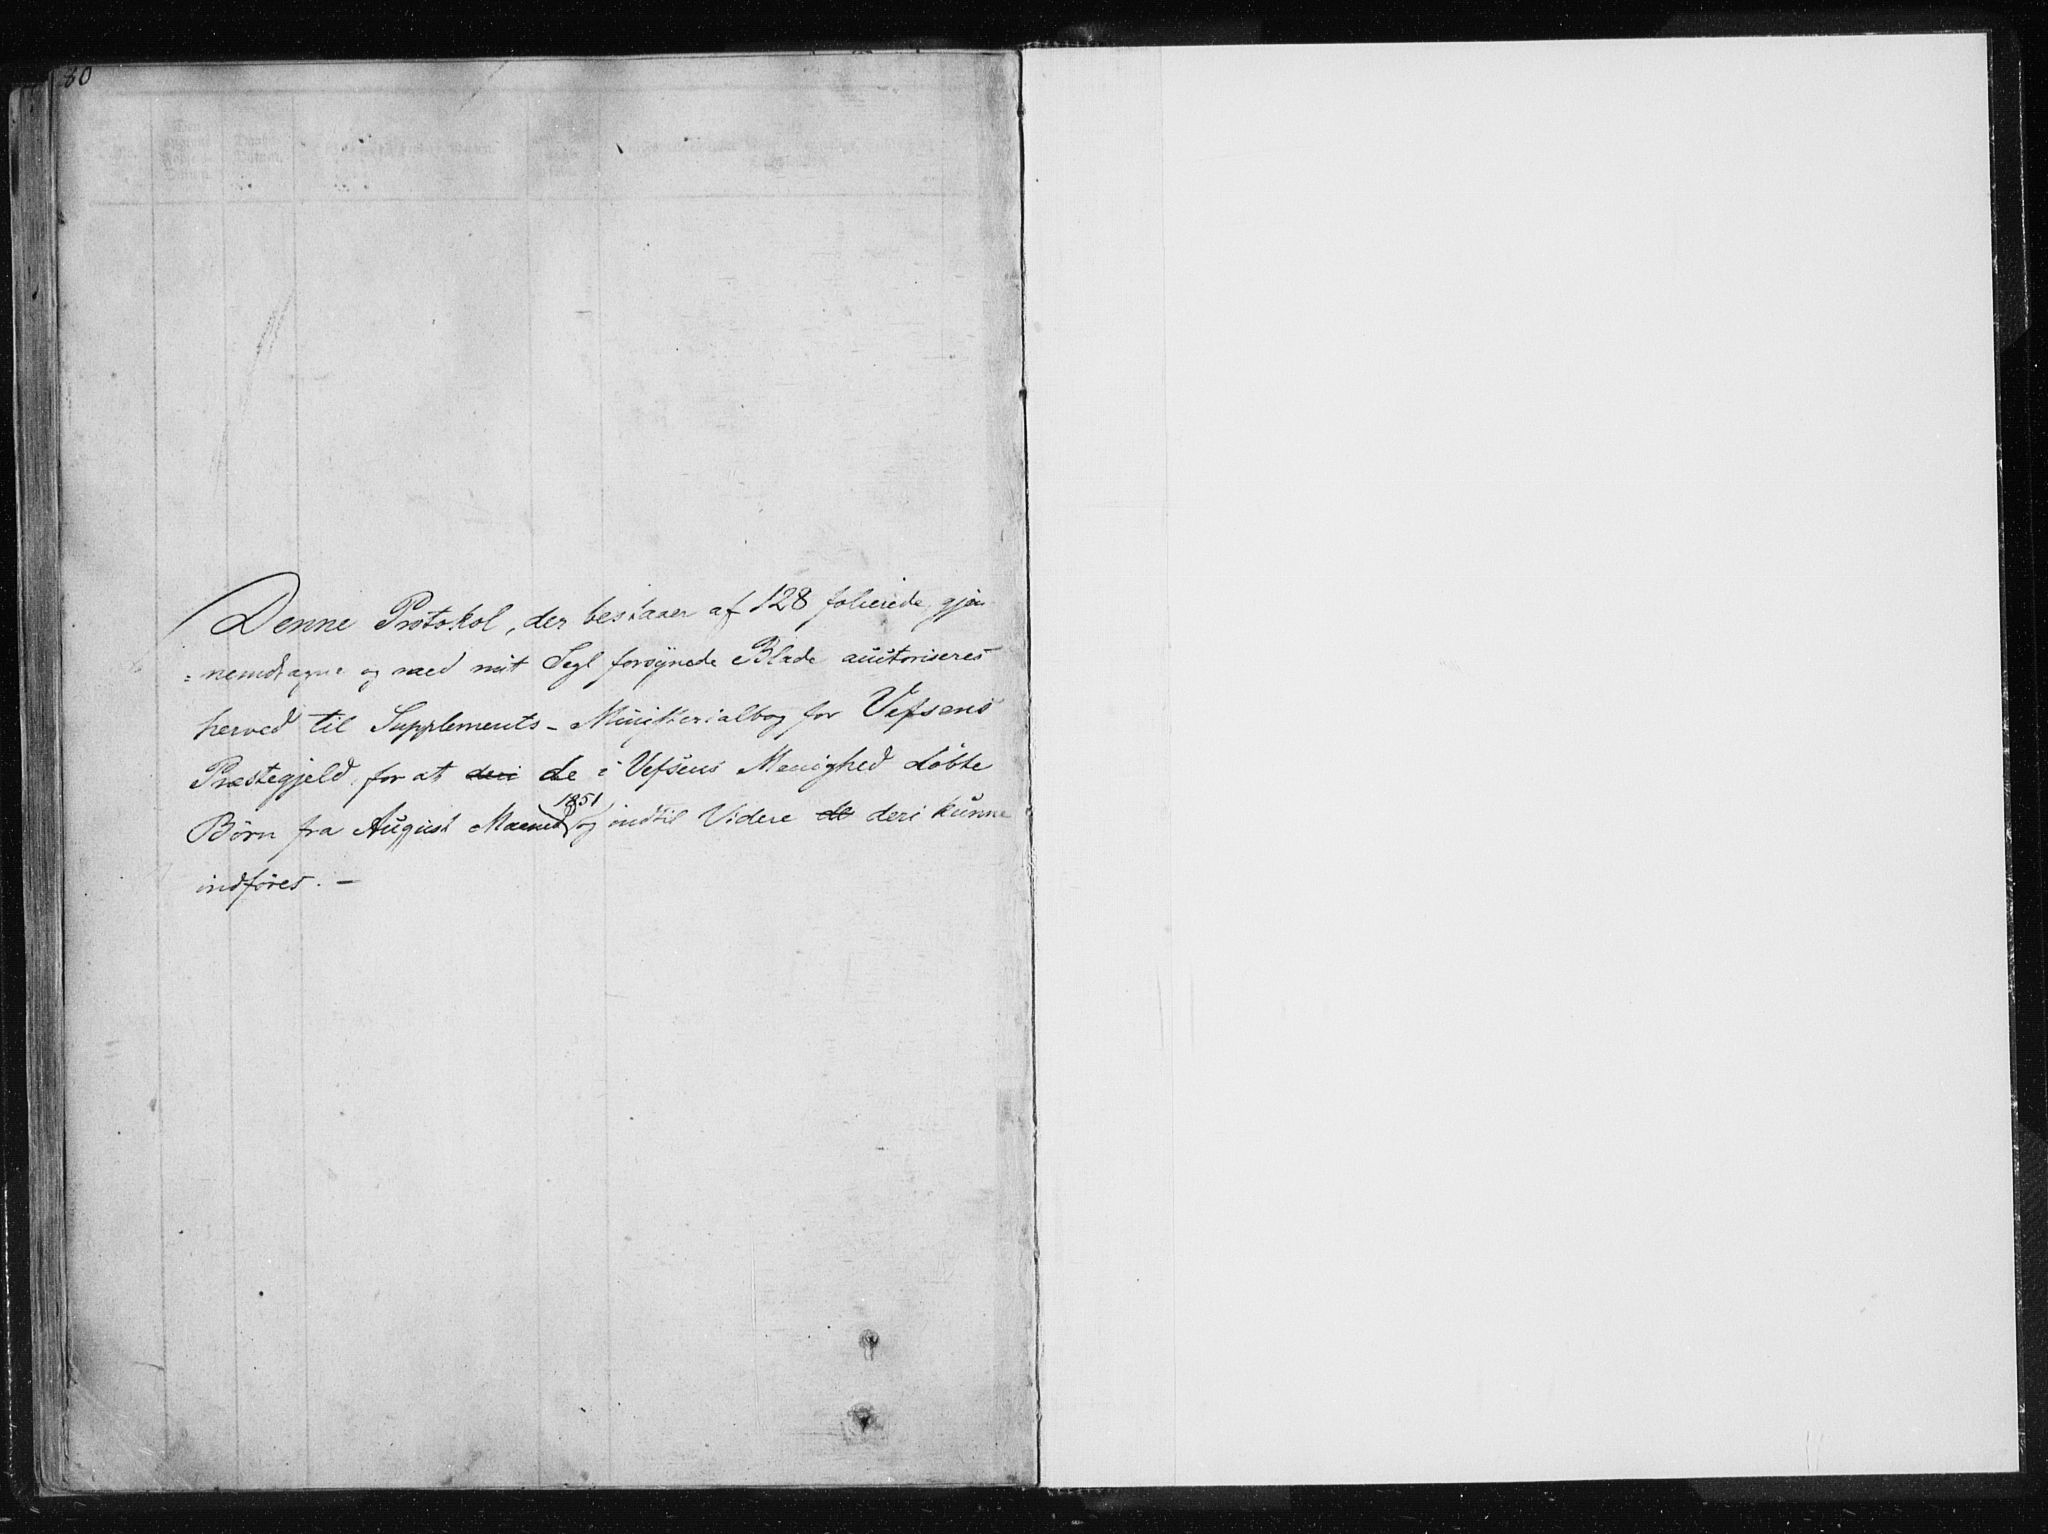 80
Denne Protokol, der bestaaer af 128 folierede, gjen
=nemdragne og med mit Segl forsynede Blade autoriseres
herved til Supplements-Ministerialbog for Vefsens
Præstegjeld, for at deri de i Vefsens Menighed døbte
Børn fra August Maaned 1851 og indtil Videre de deri kunne
indføres. -